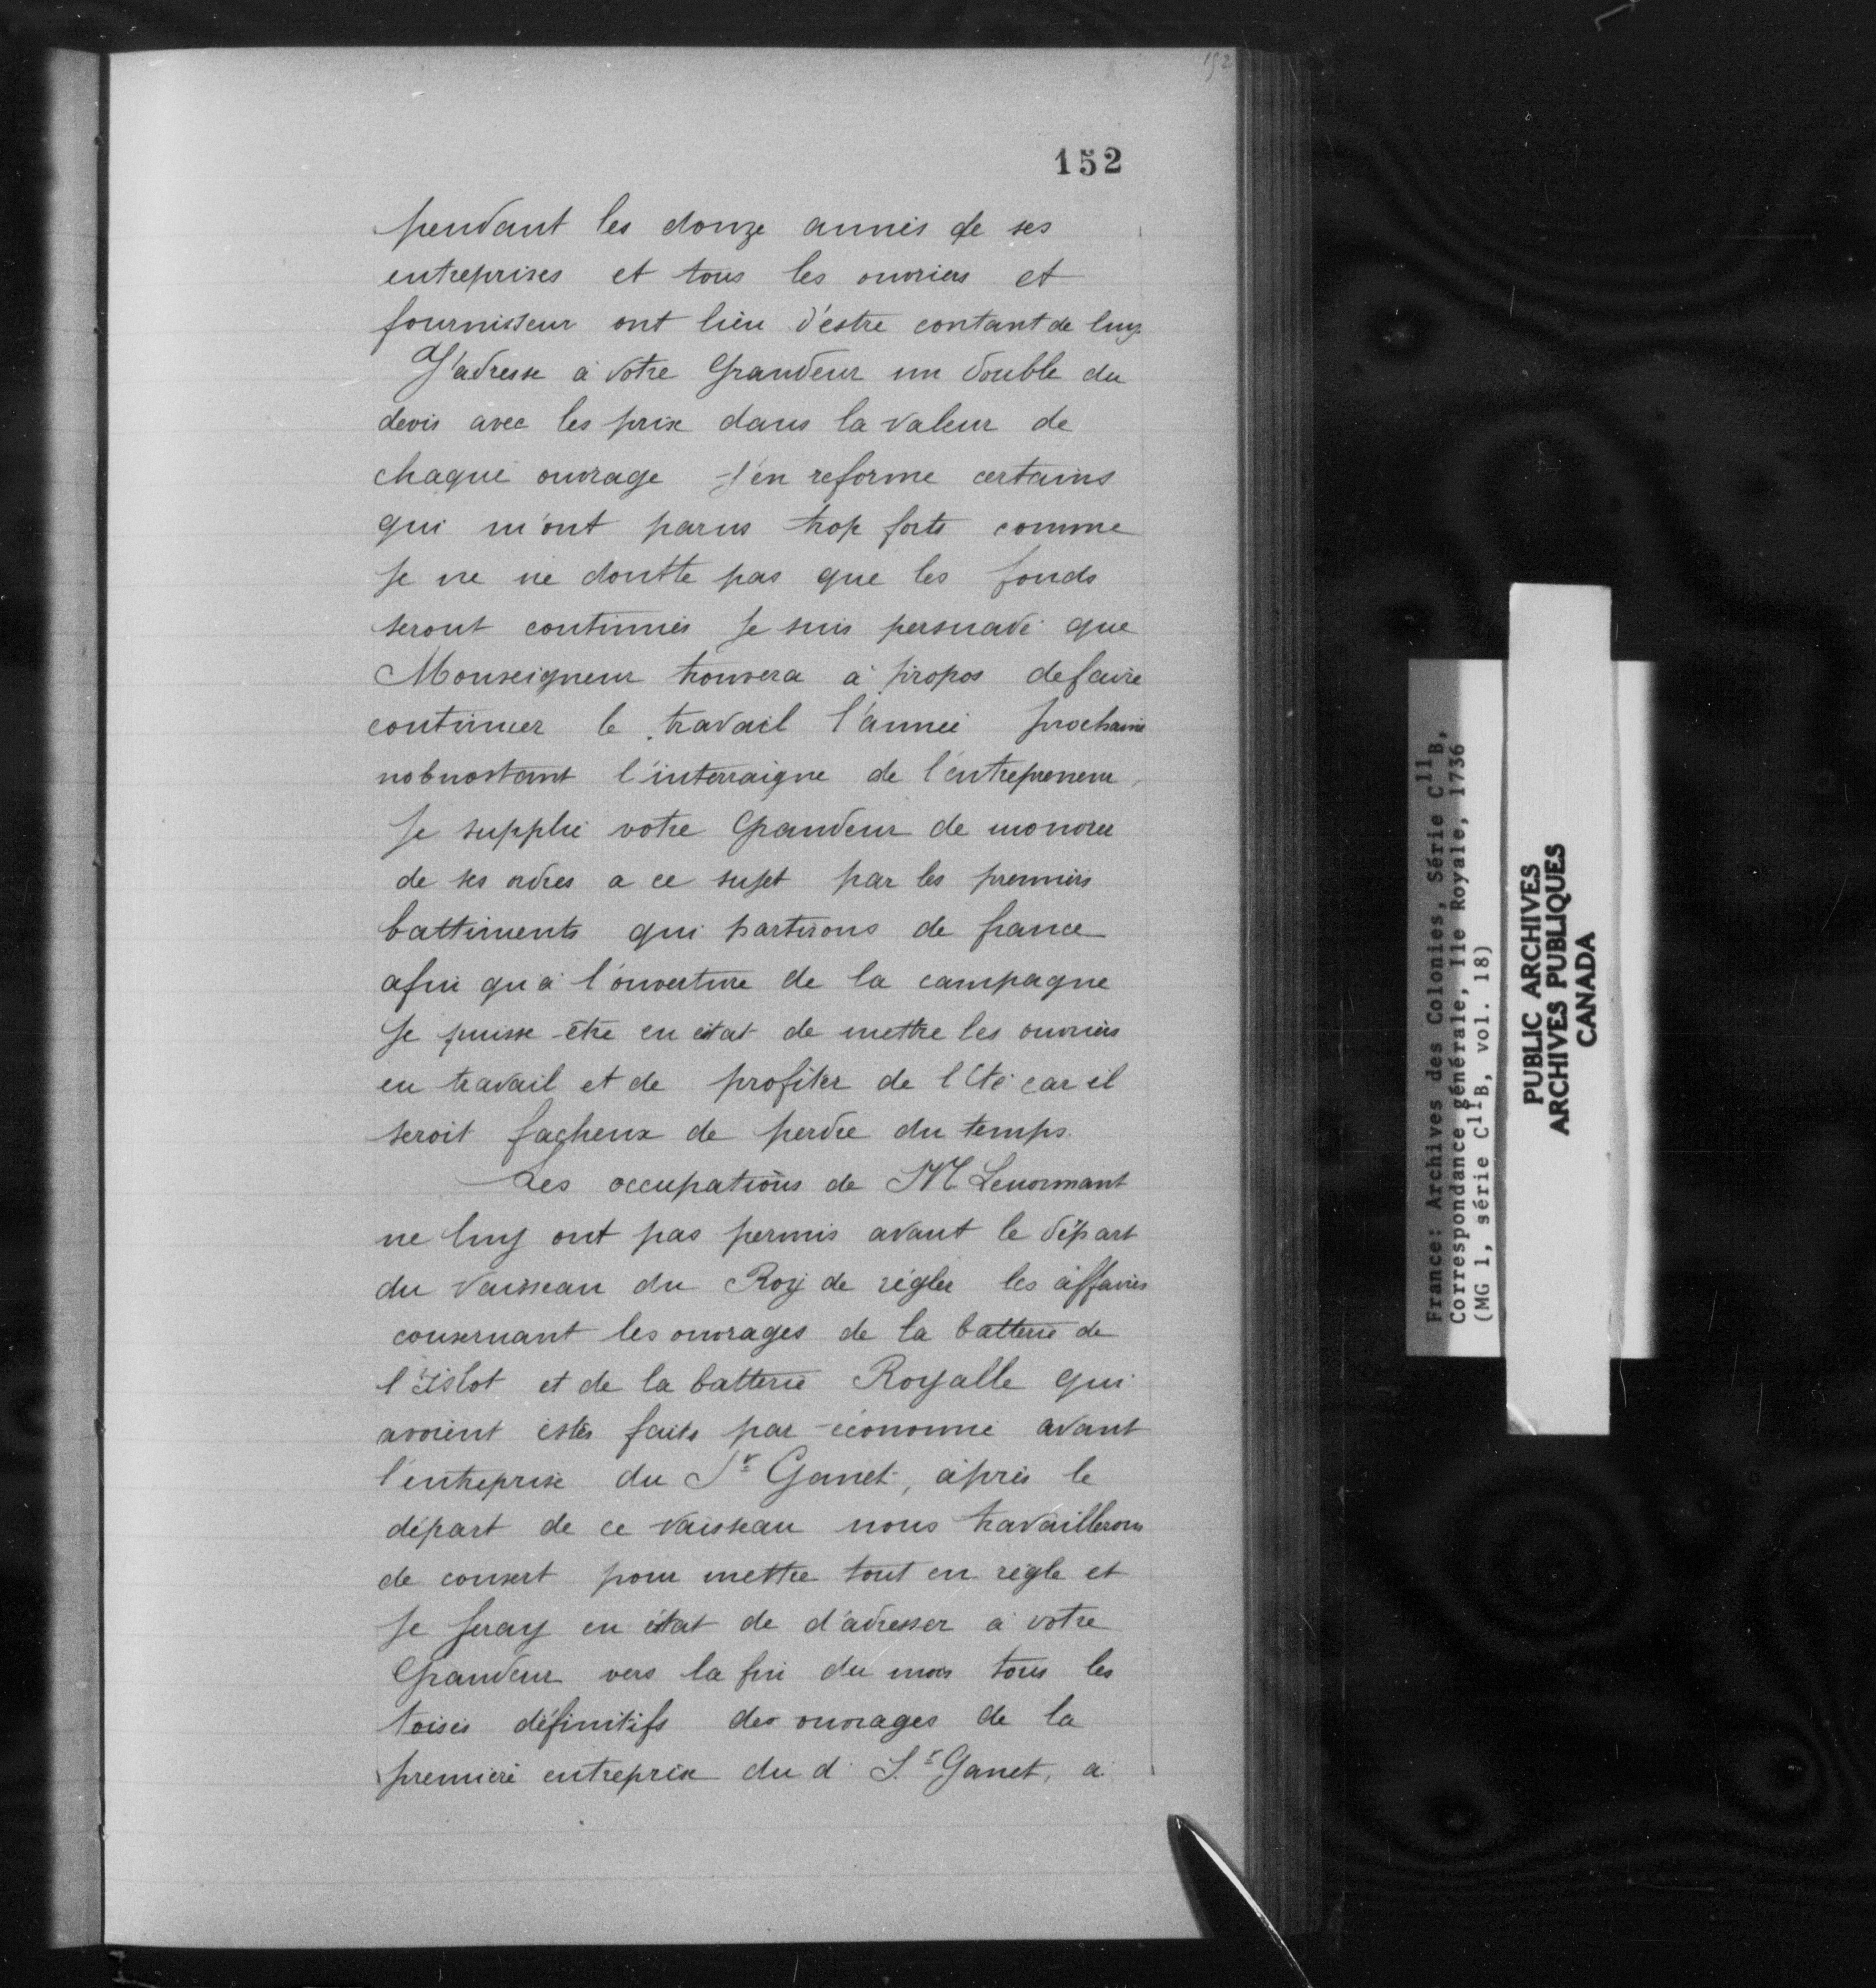 152
152
pendant les douze années de ses
entreprises et tous les ouvriers et
fournisseur ont lieu d'estre contant de luy.
J'adresse à votre Grandeur un double du
devis avec les prix dans la valeur de
chaque ouvrage j'en reforme certains
qui m'ont parus trop forts comme
Je ne ne doutte pas que les fonds
seront continués Je suis persuadé que
Monseigneur trouvera à propos de faire
continuer le travail l'année prochaine
nobnostant l'interraigne de l'entrepreneur,
Je supplie votre Grandeur de
de ses ordres a ce sujet par les premiers
battiments qui partirons de france
afin qu'à l'ouverture de la campagne
Je puisse être en état de mettre les ouvriers
en travail et de profiter de l'Eté car il
seroit facheux de perdre du temps.
Les occupations de M Lenormant
ne luy ont pas permis avant le départ
du Vaisseau du Roy de régler les affaires
consernant les ouvrages de la batterie de
l'Islot et de la batterie Royalle qui
avoient estés faits par économie avant
l'entreprise du Sr Ganet, après le
départ de ce vaisseau nous travaillerons
de consert pour mettre tout en règle et
Je seray en état de d'adresser à votre
Grandeur vers la fin du mois tous les
toisés définitifs des ouvrages de la
première entreprise du d. Sr Ganet, a
France: Archives des Colonies, Série C11B,
Correspondance générale, Ile Royale, 1736
(MG 1, série C11B, vol. 18)
PUBLIC ARCHIVES
ARCHIVES PUBLIQUES
CANADA